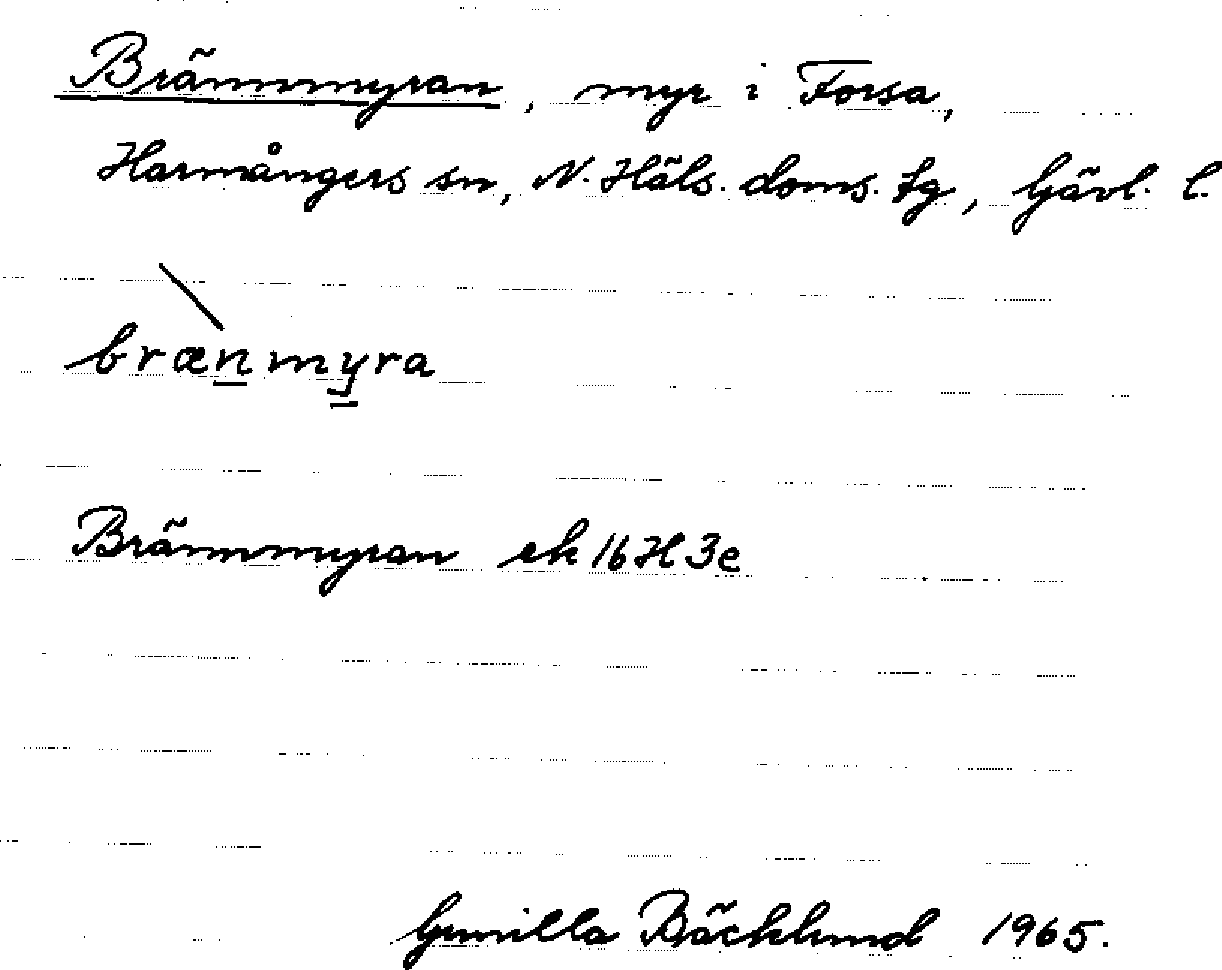 Brännmyran, myr i Forsa,
Harmångers sn, N. Häls. doms. tg, Gävl. l.
brænmyra
Brännmyran ek 16H 3e
Gunilla Bäcklund 1965.